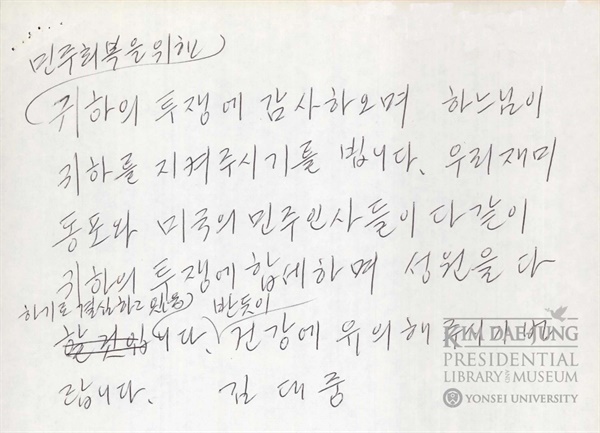 민주회복을 위해
귀하의 투쟁에 감사하오며 하느님이
귀하를 지켜주시기를 빕니다. 우리 재미
동포와 미국의 민주인사들이 다같이
귀하의 투쟁에 합세하며 성원을 다
하기로 결심하고 있읍 반듯이
할 것입니다. 건강에 유의해 주시기 바
랍니다. 김대중
KIM DAEJUNG
PRESIDENTIAL
LIBRARY AND MUSEUM
YONSEI UNIVERSITY